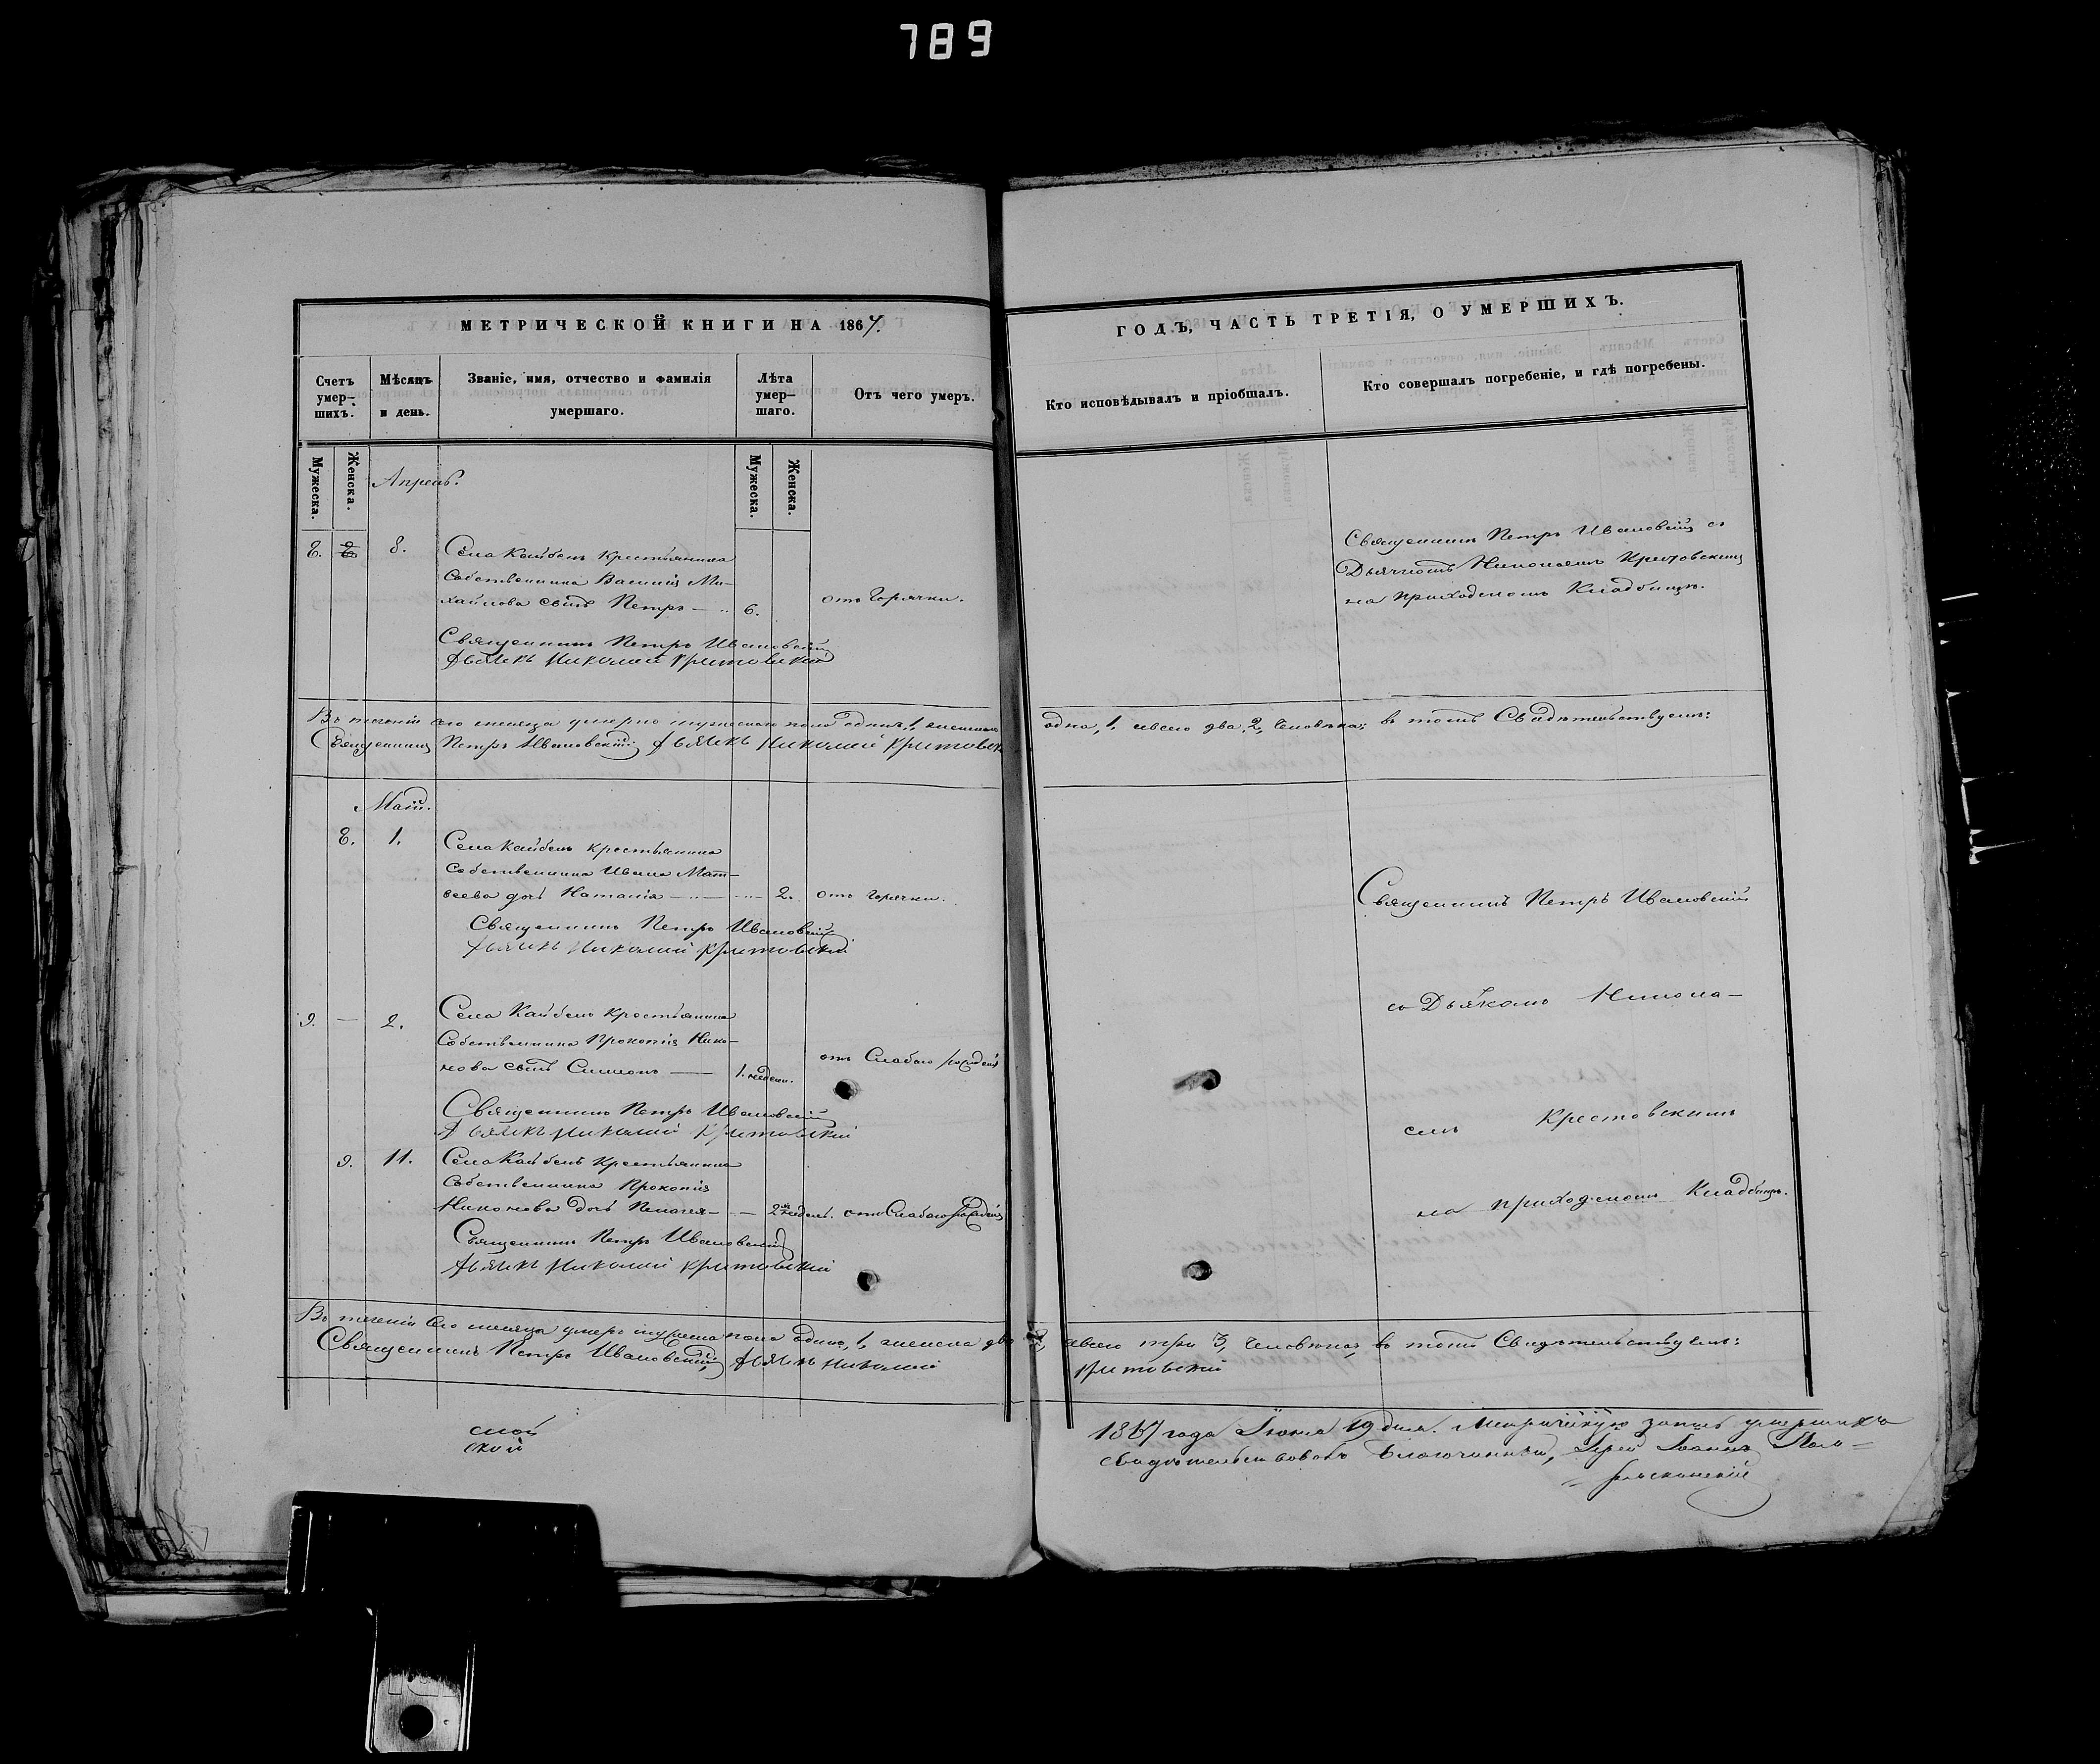 789
МЕТРИЧЕСКОЙ КНИГИ НА 1867.
Счетъ умер-шихъ.
Мѣсяцъ и день.
Званіе, имя, отчество и фамилія умершаго.
Лѣта умер-шаго.
Отъ чего умеръ.
Мужеска.
Женска.
Мужеска.
Женска.
Апрель.
8. 8. Села Кайбелъ крестьянина
Собственника Василія Ми-
хайлова сынъ Петръ 6. отъ Горячки.
Священникъ Петръ Ивановскій
Дьячекъ Николай Крестовскій
Въ теченіи сего месяца умерло мужескаго пола одинъ, 1, женскаго
Священникъ Петръ Ивановскій Дьячекъ Николай Крестовск
Май.
8. 1. Села Кайбелъ крестьянина
Собственника Ивана Мат-
веева дочь Наталія 2. отъ горячки.
Священникъ Петръ Ивановскій
Дьячекъ Николай Крестовскій
9. — 2. Села Кайбелъ Крестьянина
Собственника Прокопія Нико-
нова сынъ Симеонъ — 1. недели. отъ Слабаго рожденія
Священникъ Петръ Ивановскій
Дьячекъ Николай Крестовскій
9. 11. Села Кайбелъ Крестьянина
Собственника Прокопія
Никонова дочь Пелагея — 2 недель. отъ Слабаго рожденія
Священникъ Петръ Ивановскій
Дьячекъ Николай Крестовскій
Въ теченіи сего месяца умерло мужеска пола одинъ, 1, женска две
Священникъ Петръ Ивановскій, Дьячекъ Николай
ской
ской
ГОДЪ, ЧАСТЬ ТРЕТІЯ, О УМЕРШИХЪ.
Кто исповѣдывалъ и пріобщалъ.
Кто совершалъ погребеніе, и гдѣ погребены.
Священникъ Петръ Ивановскій съ
Дьячкомъ Николаемъ Крестовскимъ
на приходскомъ Кладбищѣ.
одна, 1, всего два, 2, человека; въ томъ Свидѣтельствуемъ:
Священникъ Петръ Ивановскій
со Дьячкомъ Никола-
емъ Крестовскимъ
на приходскомъ Кладбищѣ.
2, всего три 3, человека, въ томъ Свидѣтельствуемъ:
Крестовскій
1867 года Іюня 19 дня. Метрическую запись умершихъ
свидѣтельствовалъ Благочинный, Іерей Іоаннъ